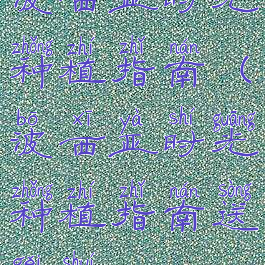 波西亚时光
zhǒng zhí zhǐ nán
种植指南(
bō xī yà shí guāng
波西亚时光
zhǒng zhí zhǐ nán sòng
种植指南送